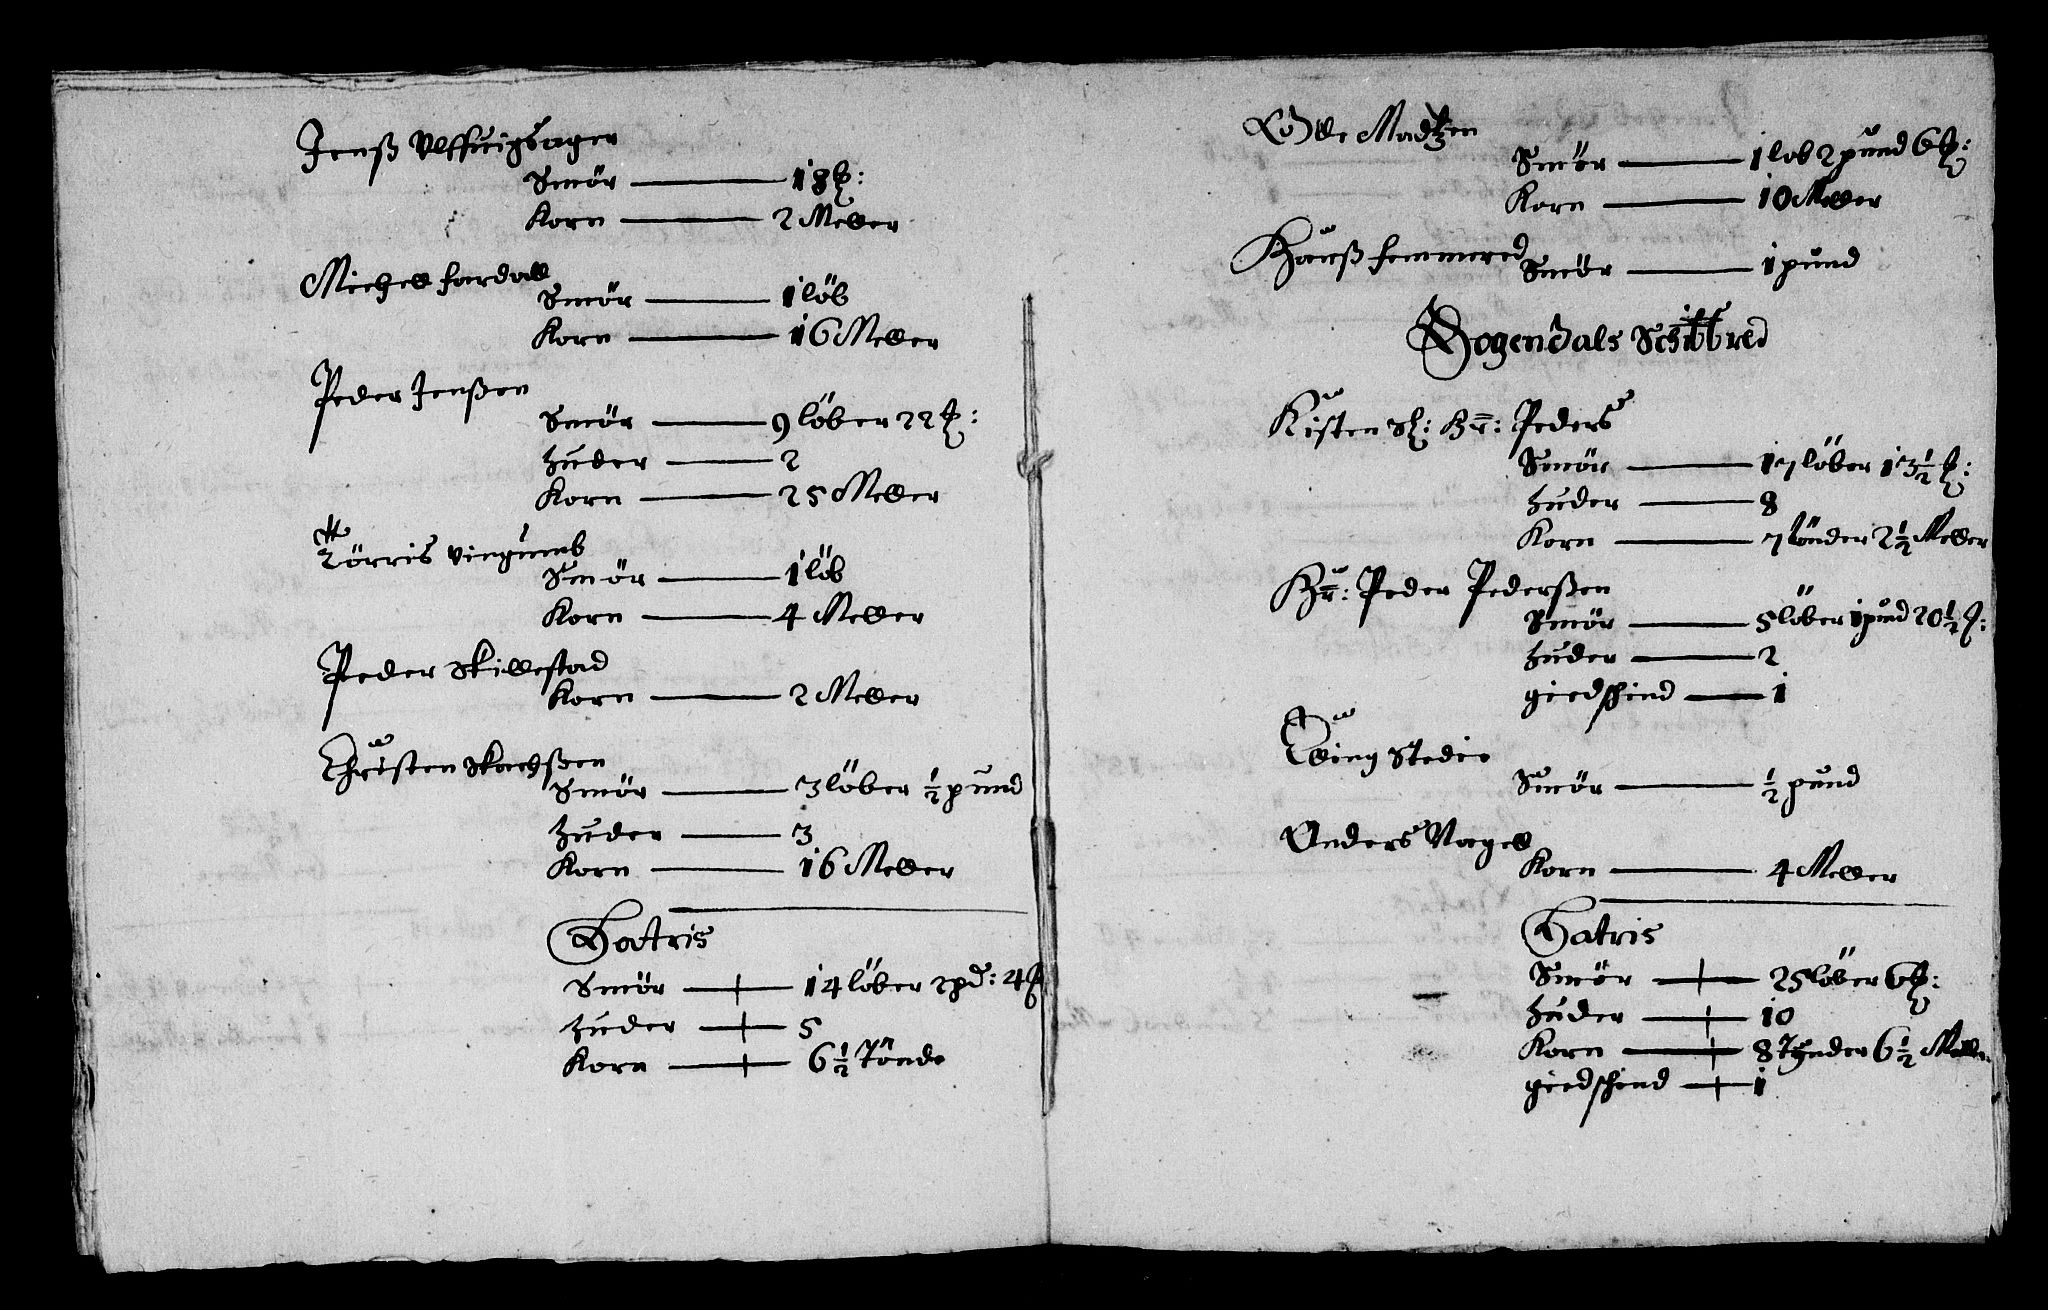 Jenß Ulffuigsager
Smör — 18 ℔:
Korn — 2 Meller
Michell fardall
Smör — 1 löb
Korn — 16 Meller
Peder Jenßen
Smör — 9 löber 22 ℔:
huder — 2
Korn — 25 Meller
Törris vingumb
Smör — 1 löb
Korn — 4 Meller
Peder Skillestad
Korn — 2 Meller
Christen Skachßen
Smör — 3 löber ½ pund
huder — 3
Korn — 16 Meller
Latris
Smör — 14 löber 2 pd: 4 ℔
huder — 5
Korn — 6½ Tönde
Madtzen
Smör — 1 lob 2 pund 6 ℔:
Korn — 10 Meller
Hanß femmered
Smör — 1 pund
Sogendals Schibbred
Kisten Sl: Hr: Peders
Smör — 17 löber 13½ ℔:
huder — 8
Korn — 7 tönder 2½ Meller
Hr: Peder Pederßen
Smör — 5 löber 1 pund 20½ ℔:
huder — 2
giedschind — 1
Elling Stedie
Smör — ½ pund
Anders Nagell
Korn — 4 Meller
Latris
Smör — 25 löber 6 ℔:
huder — 10
Korn — 8 Tynder 6½ Meller
giedschind — 1